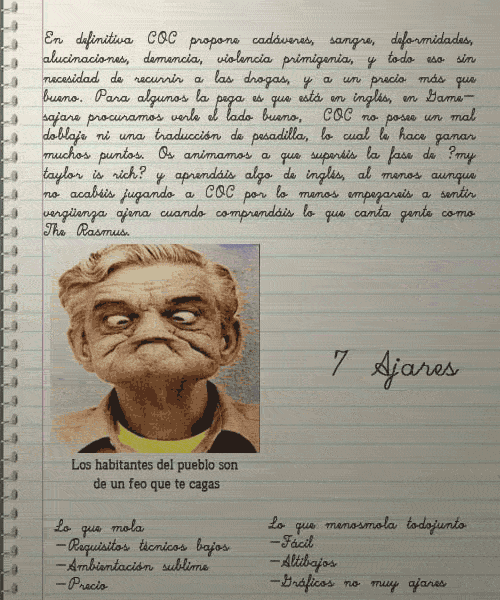 En definitiva COC propone cadáveres, sangre, deformidades,
alucinaciones, demencia, violencia primigenia, y todo eso sin
necesidad de recurrir a las drogas, y a un precio más que
bueno. Para algunos la pega es que está en inglés, en Game-
sajare procuramos verle el lado bueno, COC no posee un mal
doblaje ni una traducción de pesadilla, lo cual le hace ganar
muchos puntos. Os animamos a que superéis la fase de ?my
taylor is rich? y aprendáis algo de inglés, al menos aunque
no acabéis jugando a COC por lo menos empezareis a sentir
vergüenza ajena cuando comprendáis lo que canta gente como
The Rasmus.
7 Ajares
Los habitantes del pueblo son
de un feo que te cagas
Lo que mola
-Requisitos técnicos bajos
-Ambientación sublime
-Precio
Lo que menosmola todojunto
-Fácil
-Altibajos
-Gráficos no muy ajares